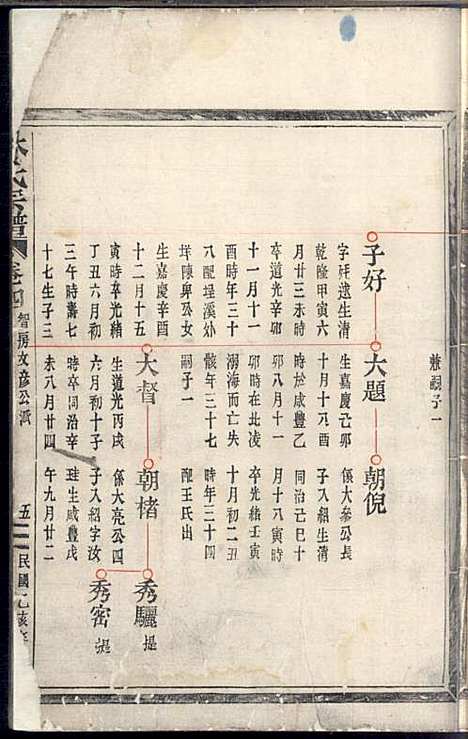 兼嗣子一
子好
字舜遠生清
乾隆甲寅六
月廿三未時
卒道光辛卯
十一月十一
酉時年三十
八配埕溪外
垟陳卑公女
生嘉慶辛酉
十二月十五
寅時卒光緒
丁丑六月初
三午時壽七
十七生子三
大題
生嘉慶己卯
十月十八酉
時於咸豐乙
卯八月十一
卯時在北凌
溺海而亡失
骸年三十七
嗣子一
大督
生道光丙戌
六月初十子
時卒同治辛
未八月廿四
朝倪
係大參公長
子入紹生清
同治己巳十
月十八寅時
卒光緒壬寅
十月初二丑
時年三十四
配王氏出
朝楮
係大亮公四
子入紹字汝
珪生咸豐戊
午九月廿二
秀驪
秀密
氏宗譜
卷四
智房文彥公派
五
民國乙亥